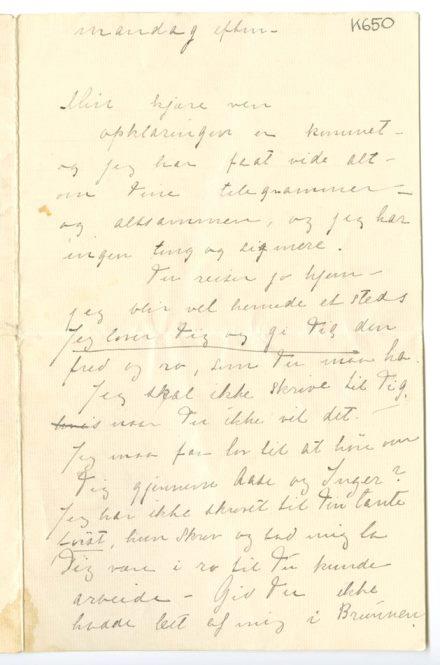 mandag eften –
K650
Min kjære ven
opklaringen er kommet –
og jeg har faat vide alt –
om dine telegrammer –
og altsammen, og jeg har
ingen ting og sige mere.
Du reiser jo hjem –
jeg blir vel hernede et steds
Jeg lover Dig og gi Dig den
fred og ro, som Du maa ha.
Jeg skal ikke skrive til Dig,
naar Du ikke vil det. –
Jeg maa faa lov til at høre om
Dig gjennem Aase og Inger?
Jeg har ikke skrevet til Din tante
sidst, hun skrev og bad mig la
Dig være i ro til Du kunde
arbeide – Gid Du ikke
hadde leet af mig i Brunnen,